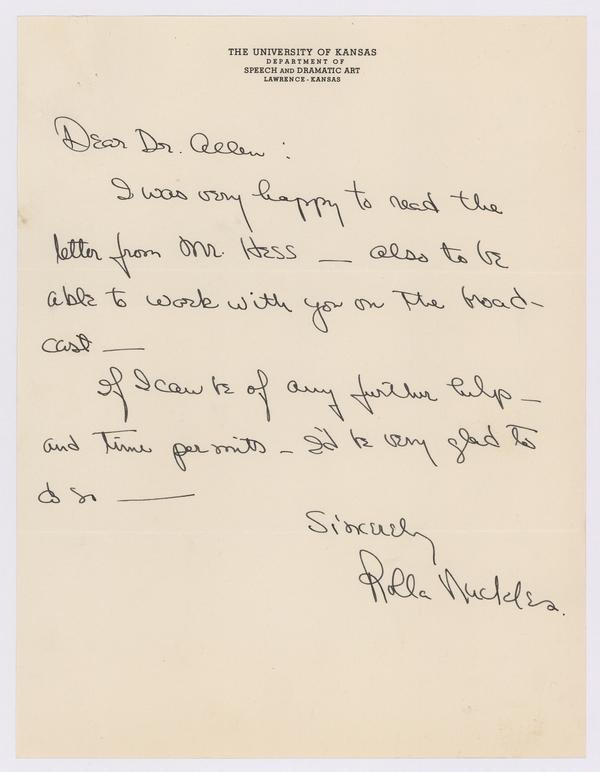 THE UNIVERSITY OF KANSAS
DEPARTMENT OF
SPEECH AND DRAMATIC ART
LAWRENCE - KANSAS
Dear Dr. Allen :
I was very happy to read the
letter from Mr. Hess — also to be
able to work with you on the broad-
cast —
If I can be of any further help —
and time permits — I'd be very glad to
do so —
Sincerely
Rolla Nuckles.